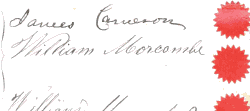 James Cameron
William Morcombe
William